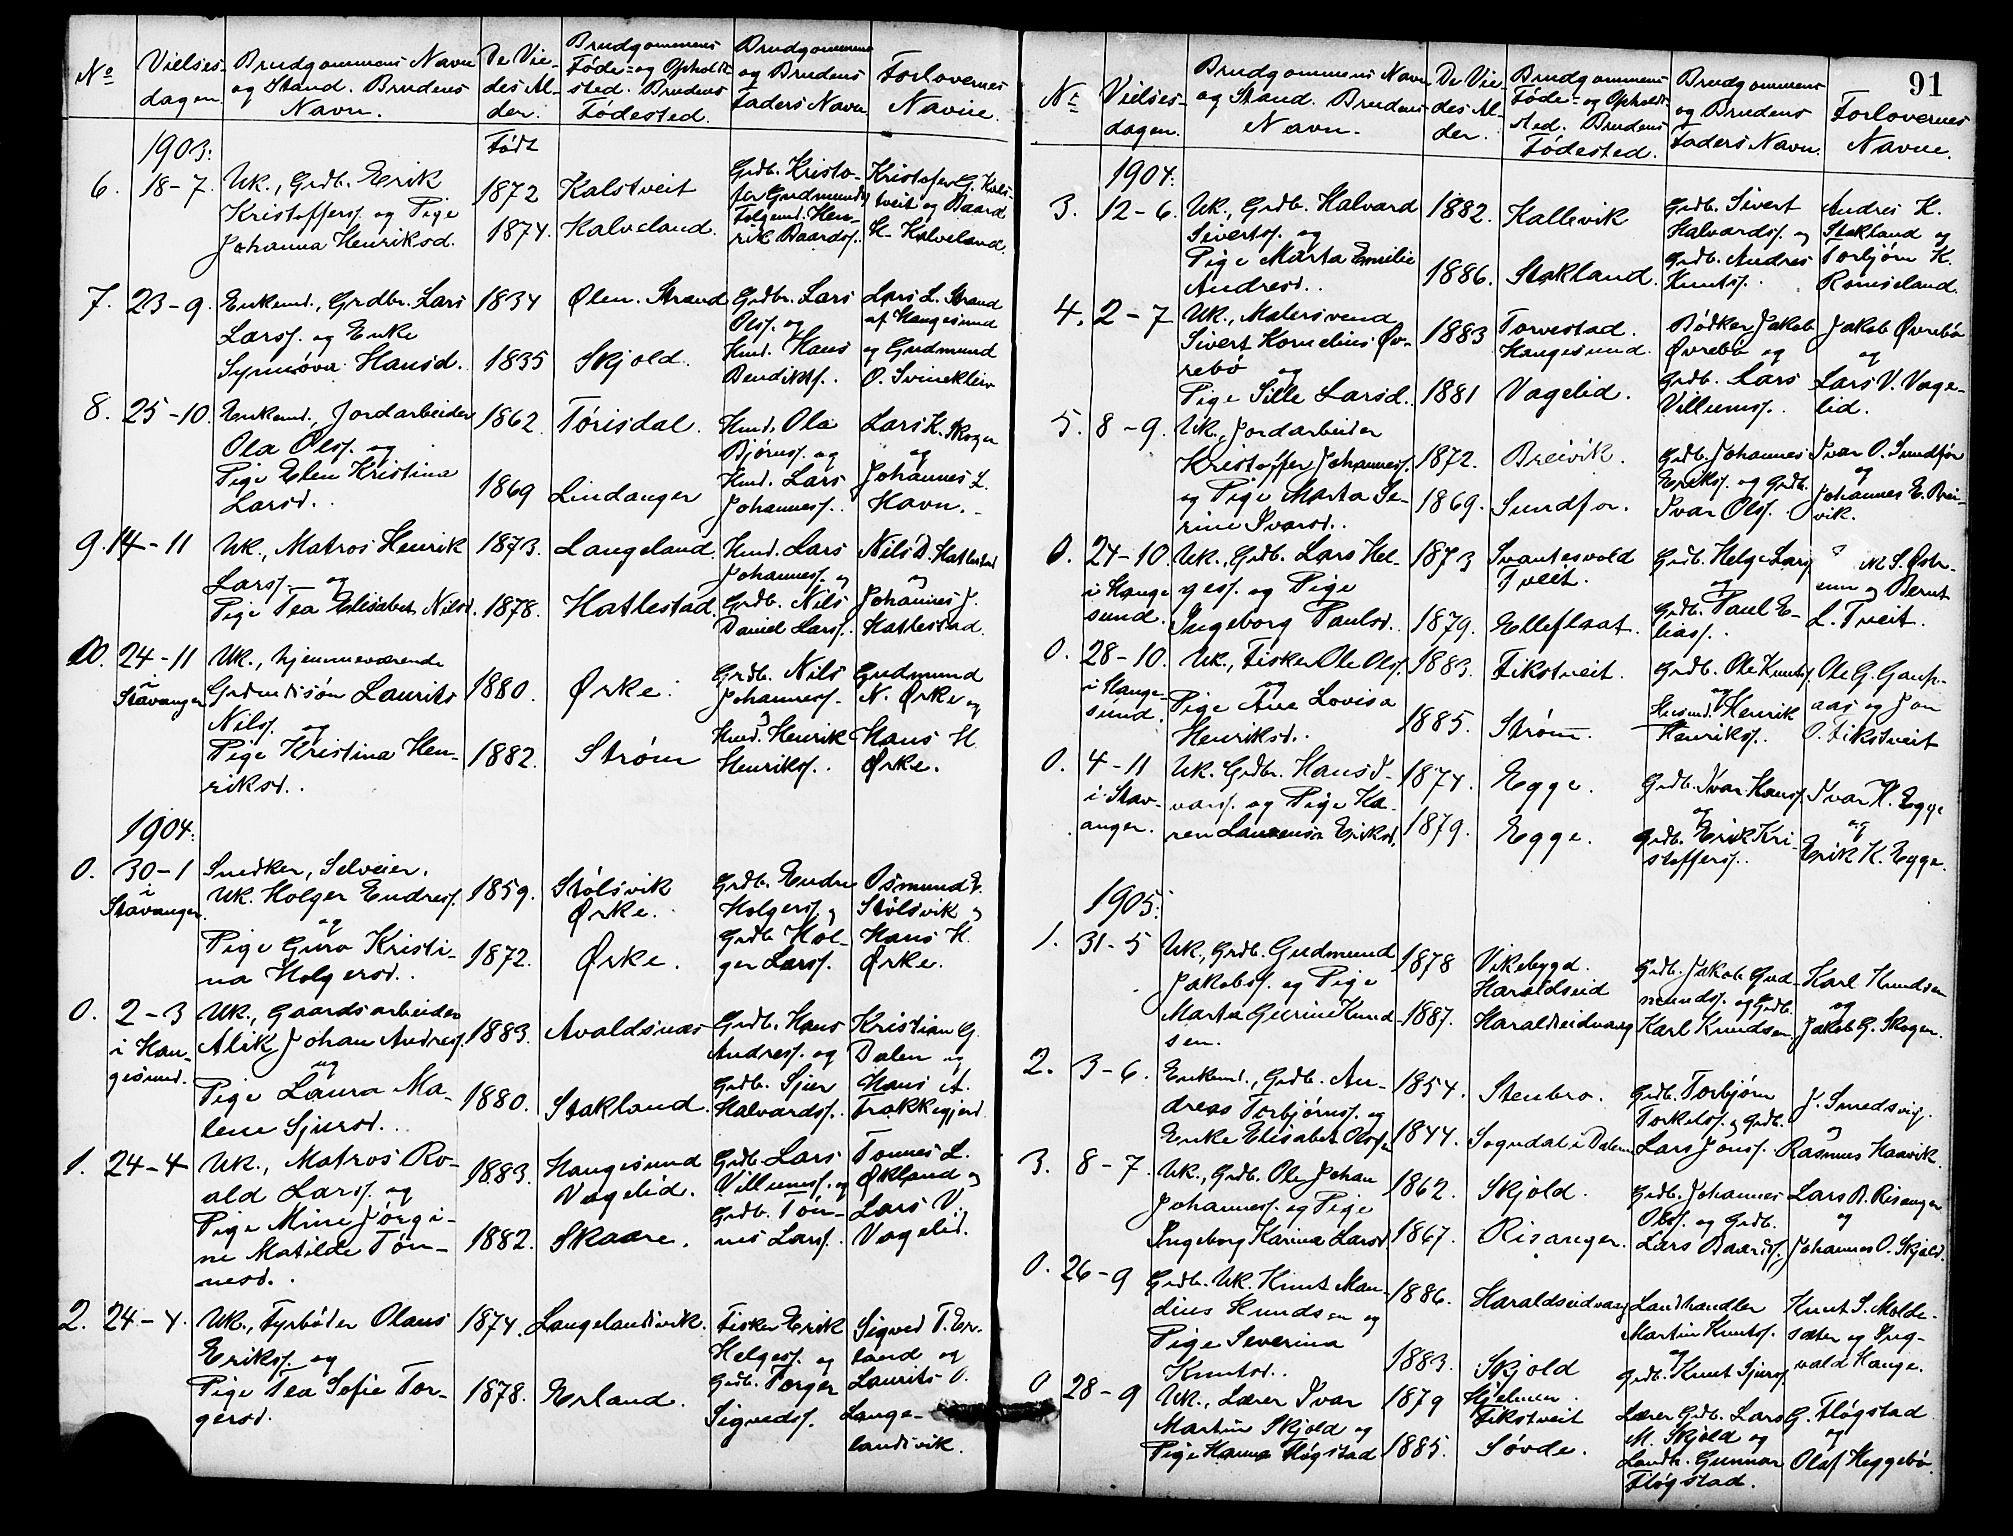 No
Vielses-
dagen.
Brudgommens Navn
og Stand. Brudens
Navn.
De Vie-
des Al-
der.
Brudgommens
Føde- og Opholds-
sted. Brudens
Fødested.
Brudgommens
og Brudens
Faders Navn.
Forlovernes
Navne.
1903:
Født
6.
18-7.
Uk., Grdb. Erik
Kristoffers. og Pige
Johanna Henriksd.
1872
1874.
Kalstveit
Kalveland.
Grdb. Kristo-
fer Gudmunds
Folgemd. Hen-
rik Baards.
Kristofer G. Kals-
tveit og Baard
H. Kalveland.
7.
23-9.
Enkemd., Grdbr. Lars
Larss. og Enke
Synnøva Hansd.
1834
1835
Ølen. Strand
Skjold.
Grdbr. Lars
Olss. og
Hmd. Hans
Bendikts.
Lars L. Strand
af Haugesund
og Gudmund
O. Svinekleiv
8.
25-10.
Enkemd., Jordarbeider
Ola Olss. og
Pige Elen Kristina
Larsd.
1862.
1869
Tørisdal.
Lindanger
Hmd. Ola
Bjørns. og
Hmd. Lars
Johanness.
Lars K. Skogen
og
Johannes L.
Havn.
9.
14-11
Uk., Matros Henrik
Larss. og
Pige Tea Elisabet Nilsd.
1873.
1878.
Langeland.
Hatlestad
Hmd. Lars
Johanness. og
Grdb. Nils
Daniel Larss.
Nils D. Hatlestad
og
Johannes J.
Hatlestad.
10.
24-11
i
Stavanger
Uk., hjemmeværende
Grdmdssøn Laurits
Nilss. og
Pige Kristina Hen-
riksd.
1880.
1882.
Ørke.
Strøm
Grdb. Nils
Johanness.
og
Hmd. Henrik
Henrikss.
Gudmund
N. Ørke og
Hans H.
Ørke.
1904:
0.
30-1
i
Stavanger.
Snedker, Selveier.
Uk. Holger Endress.
og
Pige Guro Kristi-
na Holgersd.
1859.
1872.
Stølsvik
Ørke.
Ørke.
Grdb. Endre
Holgerss. og
Grdb. Hol-
ger Larss.
Osmund E.
Stølsvik og
Hans H.
Ørke.
0.
2-3
i Hau-
gesund.
Uk., Gaardsarbeider
Alik Johan Andress.
og
Pige Laura Ma-
lene Sjursd.
1883.
1880.
Avaldsnæs
Stakland.
Grdb. Hans
Andress. og
Grdb. Sjur
Halvardss.
Kristian G.
Dalen og
Hans A.
Frakkegjerd
1.
24-4
Uk., Matros Ro-
ald Larss. og
Pige Mine Jørgi-
ne Matilde Tøn-
nesd.
1883.
1882.
Haugesund
Vagelid.
Skaare.
Grdb. Lars
Villumss. og
Grdb. Tøn-
nes Larss.
Tønnes L.
Økland og
Lars V.
Vagelid.
2.
24-4.
Uk., Fyrbøder Olaus
Erikss. og
Pige Tea Sofie Tor-
gersd.
1874.
1878.
Langelandsvik.
Erland.
Fisker Erik
Helgess. og
Grdb. Torger
Sigvedss.
Sigved T. Er-
land og
Laurits O.
Lange-
landsvik.
91
No
Vielses-
dagen.
Brudgommens Navn
og Stand. Brudens
Navn.
De Vie-
des Al-
der.
Brudgommens
Føde- og Opholds-
sted. Brudens
Fødested.
Brudgommens
og Brudens
Faders Navn.
Forlovernes
Navne.
1904:
3.
12-6.
Uk., Grdb. Halvard
Siverts. og
Pige Marta Emilie
Andresd.
1882.
1886.
Kallevik
Stakland.
Grdb. Sivert
Halvardss. og
Grdb. Andres
Knuts.
Andres K.
Stakland og
Torbjørn K.
Romseland.
4.
2-7
Uk., Malersvend
Sivert Kornelius Øv-
rebø og
Pige Sille Larsd.
1883
1881
Torvestad.
Haugesund.
Vagelid.
Bødker Jakob
Øvrebø og
Grdb. Lars
Villumss.
Jakob Øvrebø
og
Lars V. Vage-
lid.
5.
8-9.
Uk., Jordarbeider
Kristoffer Johanness.
og Pige Marta Se-
rine Ivarsd.
1872.
1869.
Breivik.
Sundfør.
Grdb. Johannes
Erikss. og Grdb.
Ivar Olss.
Ivar O. Sundfør
og
Johannes E. Brei-
vik.
0.
24-10
i Hauge
sund.
Uk., Grdb. Lars Hel-
gess. og Pige
Ingeborg Paulsd.
1873
1879.
Svantesvold
Tveit.
Elleflaat.
Grdb. Helge Larss
og
Grdb. Paul E-
liass.
S. Østr-
em og Bernt
L. Tveit.
0.
28-10.
i Hauge-
sund.
Uk., Fisker Ole Olss.
og
Pige Ane Lovisa
Henriksd.
1883.
1885.
Fikstveit.
Strøm.
Grdb. Ole Knuts.
og
Husmd. Henrik
Henrikss.
Ole G. Gaup-
aas og Jon
O. Fikstveit
0.
4-11
i Stav-
anger.
Uk. Grdbr. Hans I-
varss. og Pige Ka-
ren Laurensa Eriksd.
1874.
1879.
Egge.
Egge.
Grdb. Ivar Hanss.
og
Grdb. Erik Kri-
stofferss.
Ivar H. Egge
og
Erik K. Egge.
1905:
1.
31-5
Uk., Grdb. Gudmund
Jakobss. og Pige
Marta Gurine Knud-
sen.
1878
1887.
Vikebygd.
Haraldseid
Haraldseidvaag
Grdb. Jakob Gud-
mundss. og Grdb.
Karl Knudsen.
Karl Knudsen
og
Jakob G. Skogen.
2.
3-6.
Enkemd., Grdb. An-
dreas Torbjørnss. og
Enke Elisabet Olss.
1854.
1844.
Stenbro.
Sogndal i Dalene
Grdb. Torbjørn
Torkelss. og Grdb.
Lars Jonss.
J. Smedsvig.
og
Rasmus Haavik.
3.
8-7.
Uk., Grdb. Ole Johan
Johanness. og Pige
Ingeborg Karina Larsd
1862.
1867.
Skjold.
Risanger.
Grdb. Johannes
Olss. og Grdb.
Lars Baardss.
Lars B. Risanger
og
Johannes O. Skjold.
0.
26-9
Grdb. Uk. Knut Man-
dius Knudsen og
Pige Severina
Knutsd.
1886.
1883.
Haraldseidvaag
Skjold
Landhandler
Martin Knuts.
og
Grdb. Knut Sjurss.
Knut S. Molde-
sæter og Ing-
vald Hauge.
0
28-9
Uk., Lærer Ivar
Martin Skjold og
Pige Hanna Fløgstad
1879
1885.
Hjelmen.
Fikstveit
Søvde.
Lærer Grdb. Lars
M. Skjold og
Landh. Gunnar
Fløgstad.
G. Fløgstad
og
Olaf Heggebø.